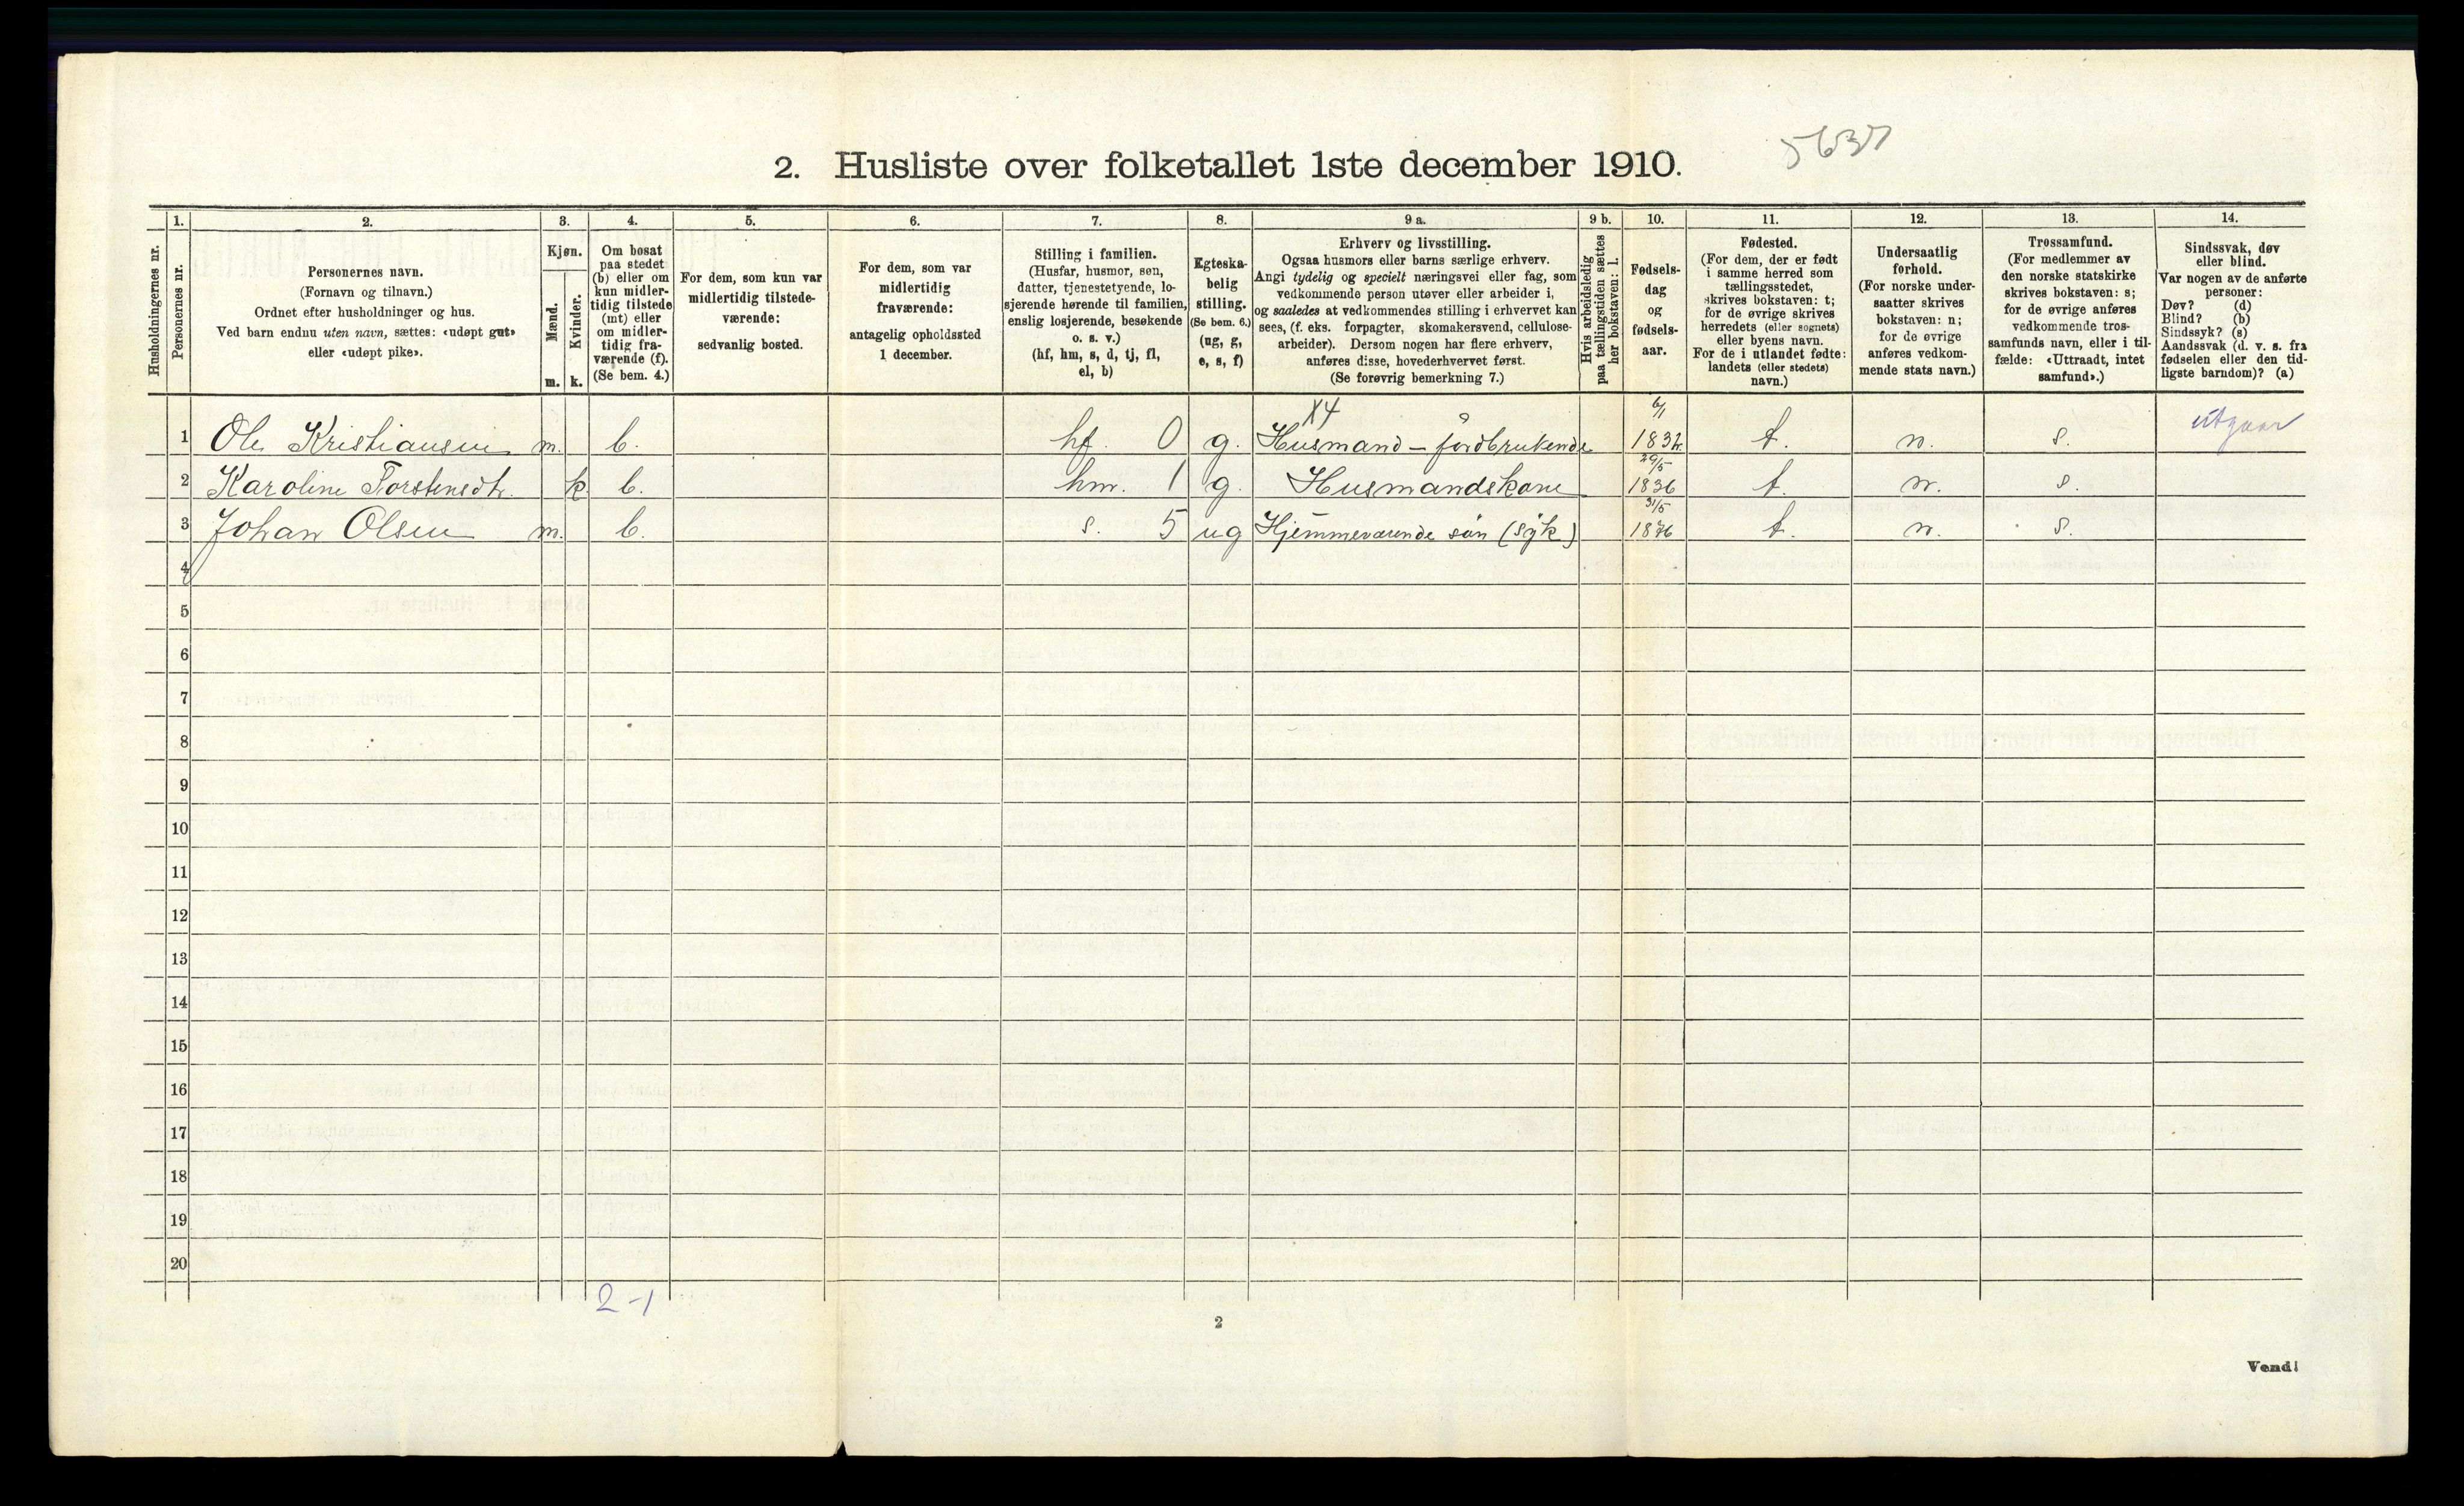 5637
2. Husliste over folketallet 1ste december 1910.
Husholdningernes nr.
1.
Personernes nr.
2.
Personernes navn.
(Fornavn og tilnavn.)
Ordnet efter husholdninger og hus.
Ved barn endnu uten navn, sættes: «udøpt gut»
eller «udøpt pike».
3.
Kjøn.
Mænd.
Kvinder.
m. k.
4.
Om bosat
paa stedet
(b) eller om
kun midler-
tidig tilstede
(mt) eller
om midler-
tidig fra-
værende (f).
(Se bem. 4.)
5.
For dem, som kun var
midlertidig tilstede-
værende:
sedvanlig bosted.
6.
For dem, som var
midlertidig
fraværende:
antagelig opholdssted
1 december.
7.
Stilling i familien.
(Husfar, husmor, søn,
datter, tjenestetyende, lo-
sjerende hørende til familien,
enslig losjerende, besøkende
o. s. v.)
(hf, hm, s, d, tj, fl,
el, b)
8.
Egteska-
belig
stilling.
(Se bem. 6.)
(ug, g,
e, s, f)
9 a.
Erhverv og livsstilling.
Ogsaa husmors eller barns særlige erhverv.
Angi tydelig og specielt næringsvei eller fag, som
vedkommende person utøver eller arbeider i,
og saaledes at vedkommendes stilling i erhvervet kan
sees, (f. eks. forpagter, skomakersvend, cellulose-
arbeider). Dersom nogen har flere erhverv,
anføres disse, hovederhvervet først.
(Se forøvrig bemerkning 7.)
9 b.
Hvis arbeidsledig
paa tællingstiden sættes
her bokstaven: l.
10.
Fødsels-
dag
og
fødsels-
aar.
11.
Fødested.
(For dem, der er født
i samme herred som
tællingsstedet,
skrives bokstaven: t;
for de øvrige skrives
herredets (eller sognets)
eller byens navn.
For de i utlandet fødte:
landets (eller stedets)
navn.)
12.
Undersaatlig
forhold.
(For norske under-
saatter skrives
bokstaven: n;
for de øvrige
anføres vedkom-
mende stats navn.)
13.
Trossamfund.
(For medlemmer av
den norske statskirke
skrives bokstaven: s;
for de øvrige anføres
vedkommende tros-
samfunds navn, eller i til-
fælde: «Uttraadt, intet
samfund».)
14.
Sindssvak, døv
eller blind.
Var nogen av de anførte
personer:
Døv? (d)
Blind? (b)
Sindssyk? (s)
Aandssvak (d. v. s. fra
fødselen eller den tid-
ligste barndom)? (a)
X4 6/1
1 Ole Kristiansen m. b. hf. 0 g. Husmand – jordbrukende 1832 t. n. s. utgaar
29/5
2 Karoline Torstensdtr. k b. hm. 1 g. Husmandskone 1836 t. n. s.
31/5
3 Johan Olsen m. b. s. 5 ug Hjemmeværende sön (syk) 1876 t. n. s.
4
5
6
7
8
9
10
11
12
13
14
15
16
17
18
19
20
2-1
2
Vend!